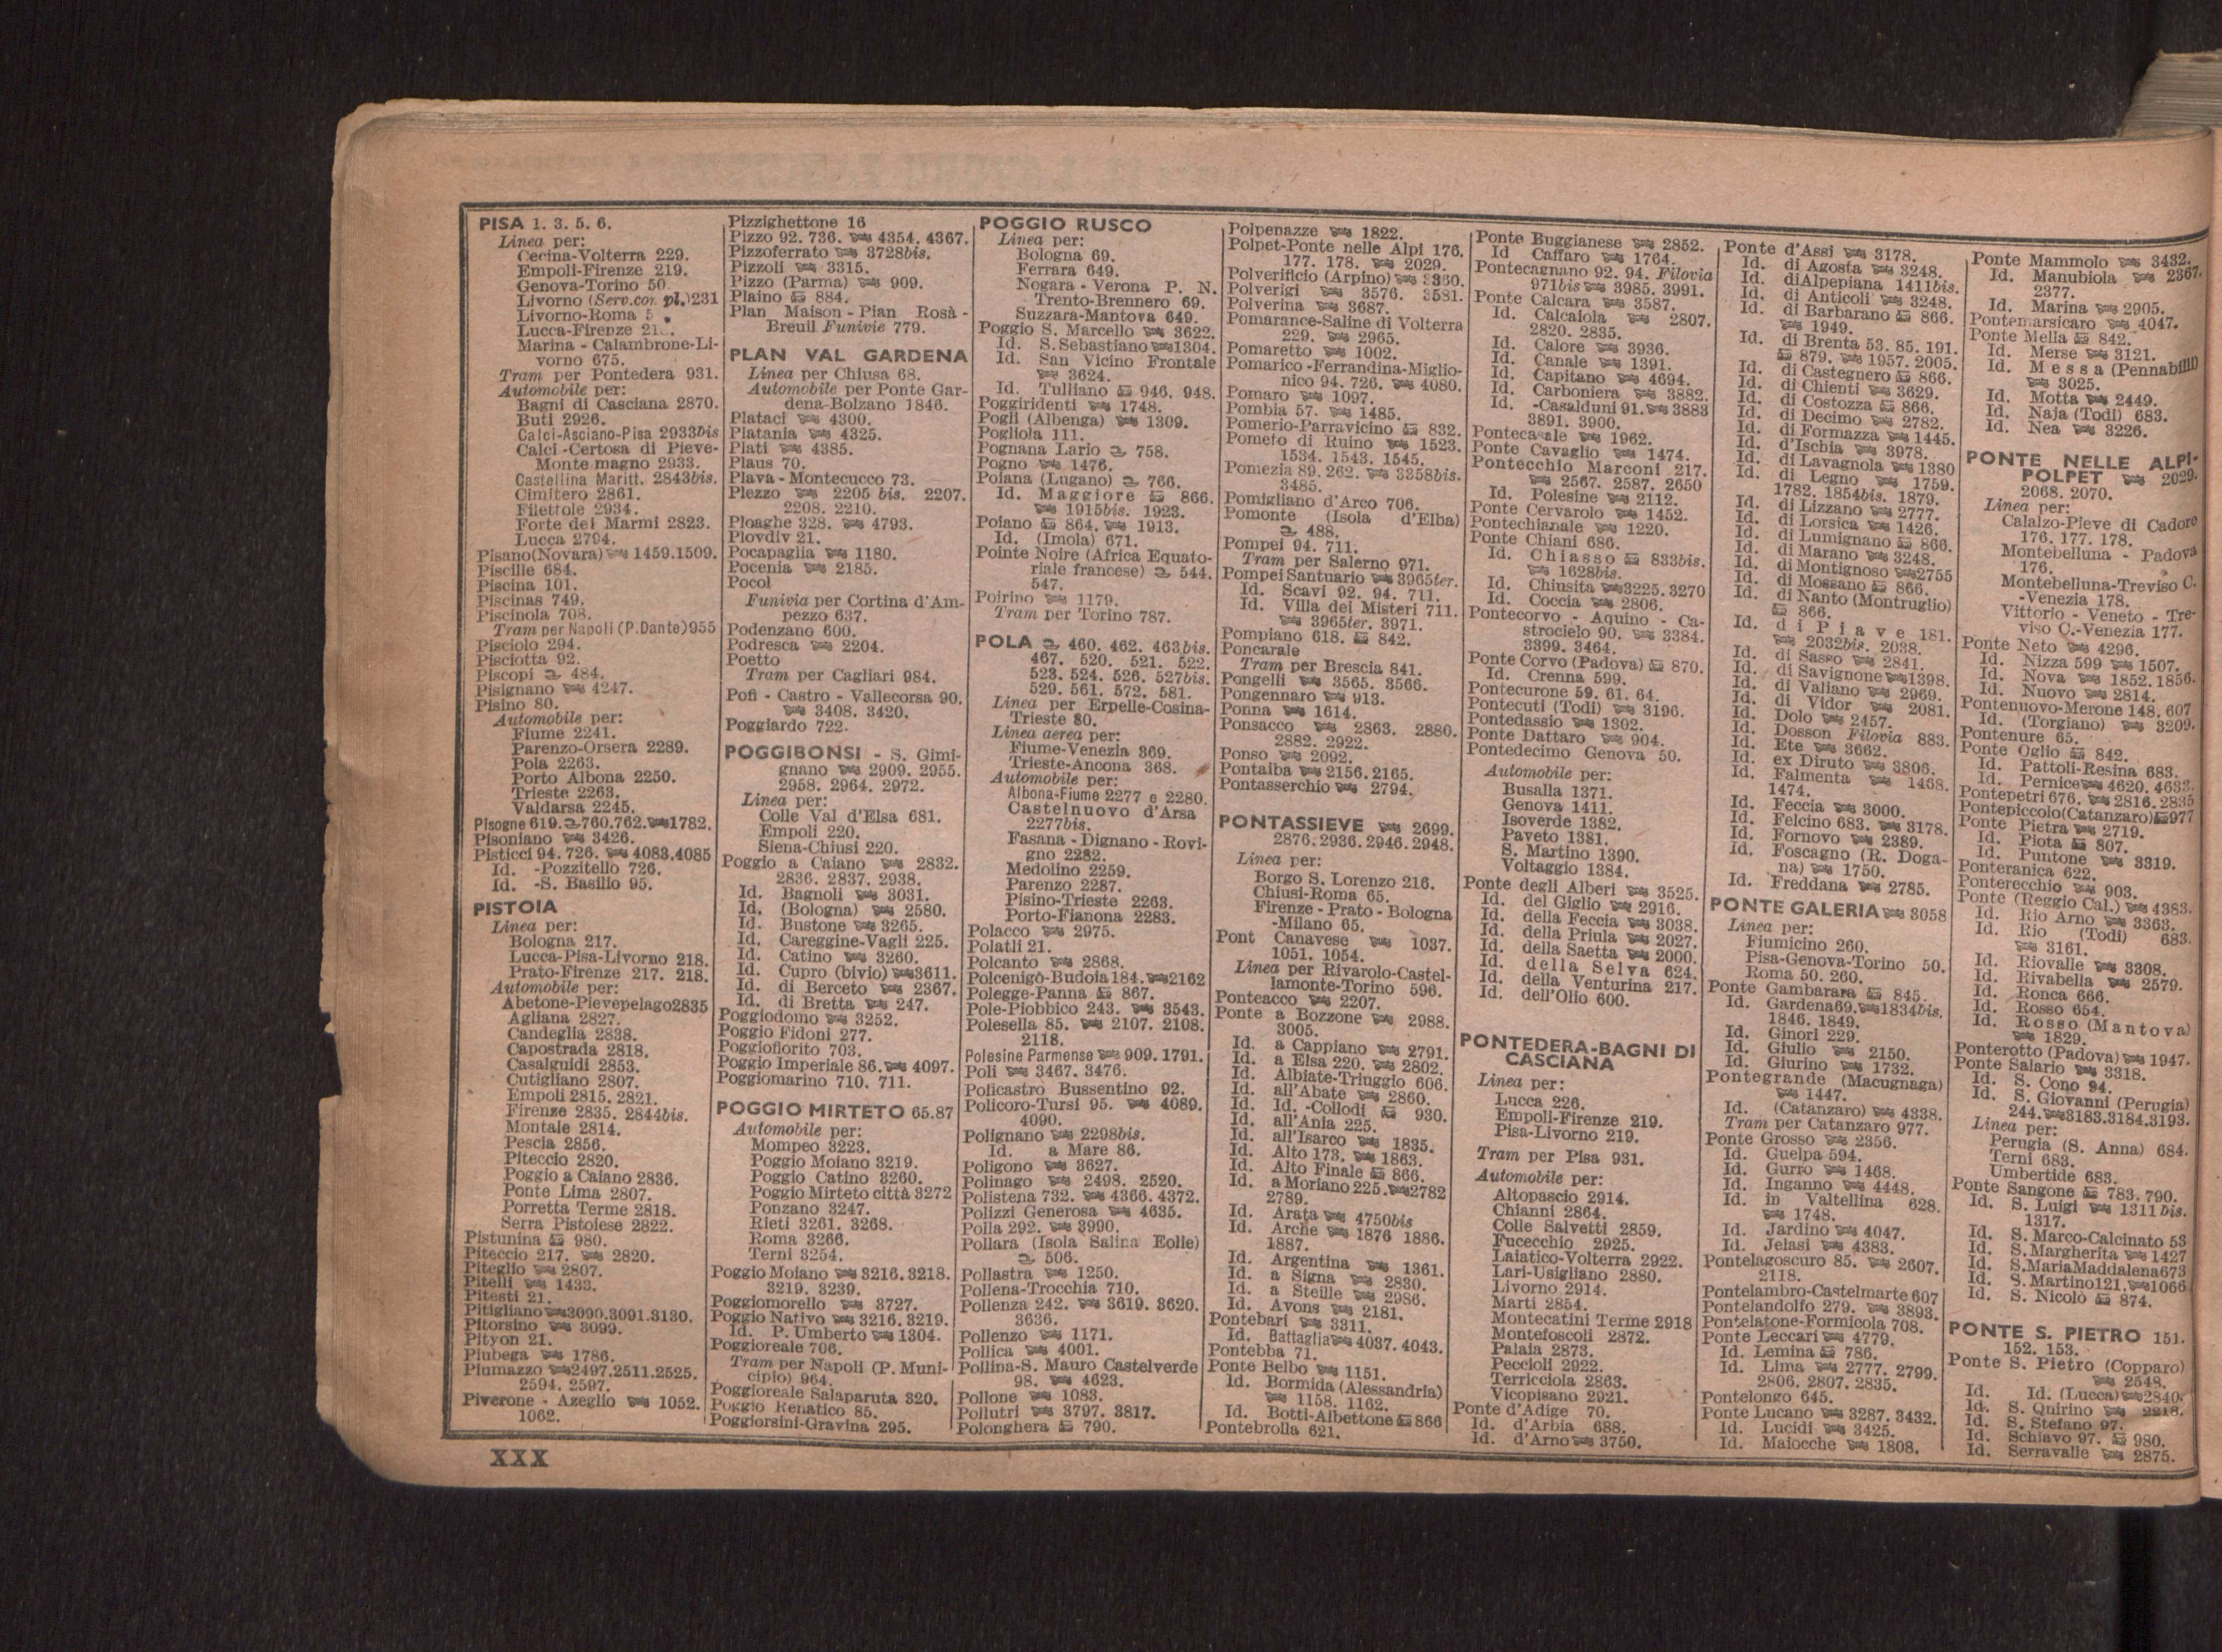 PISA 1. 3. 5. 6.
Linea per:
Cecina-Volterra 229.
Empoli-Firenze 219.
Genova-Torino 50.
Livorno (Serv. cor. pl.) 231
Livorno-Roma 5
Lucca-Firenze
Marina - Calambrone-Li-
vorno 675.
Tram per Pontedera 931.
Automobile per:
Bagni di Casciana 2870.
Buti 2926.
Calci-Asciano-Pisa 2933bis
Calci - Certosa di Pieve-
Monte magno 2933.
Castellina Maritt. 2843bis.
Cimitero 2861.
Filettole 2934.
Forte dei Marmi 2823.
Lucca 2794.
Pisano (Novara) 1459. 1509.
Piscille 684.
Piscina 101.
Piscinas 749.
Piscinola 708.
Tram per Napoli (P. Dante) 955
Pisciolo 294.
Pisciotta 92.
Piscopi 484.
Pisignano 4247.
Pisino 80.
Automobile per:
Fiume 2241.
Parenzo-Orsera 2289.
Pola 2263.
Porto Albona 2250.
Trieste 2263.
Valdarsa 2245.
Pisogne 619. 760. 762. 1782.
Pisoniano 3426.
Pisticci 94. 726. 4083. 4085
Id. -Pozzitello 726.
Id. -S. Basilio 95.
PISTOIA
Linea per:
Bologna 217.
Lucca-Pisa-Livorno 218.
Prato-Firenze 217. 218.
Automobile per:
Abetone-Pievepelago 2835
Agliana 2827.
Candeglia 2838.
Capostrada 2818.
Casalguidi 2853.
Cutigliano 2807.
Empoli 2815. 2821.
Firenze 2835. 2844bis.
Montale 2814.
Pescia 2856.
Piteccio 2820.
Poggio a Caiano 2836.
Ponte Lima 2807.
Porretta Terme 2818.
Serra Pistoiese 2822.
Pistunina 980.
Piteccio 217. 2820.
Piteglio 2807.
Pitelli 1433.
Pitesti 21.
Pitigliano 3090. 3091. 3130.
Pitorsino 3099.
Pityon 21.
Piubega 1786.
Piumazzo 2497. 2511. 2525.
2594. 2597.
Piverone - Azeglio 1052.
1062.
Pizzighettone 16
Pizzo 92. 736. 4354. 4367.
Pizzoferrato 3728bis.
Pizzoli 3315.
Pizzo (Parma) 909.
Plaino 884.
Plan Maison - Plan Rosà -
Breuil Funivie 779.
PLAN VAL GARDENA
Linea per Chiusa 68.
Automobile per Ponte Gar-
dena-Bolzano 1846.
Plataci 4300.
Platania 4325.
Plati 4385.
Plaus 70.
Plava - Montecucco 73.
Plezzo 2205 bis. 2207.
2208. 2210.
Ploaghe 328. 4793.
Plovdiv 21.
Pocapaglia 1180.
Pocenia 2185.
Pocol
Funivia per Cortina d'Am-
pezzo 637.
Podenzano 600.
Podresca 2204.
Poetto
Tram per Cagliari 984.
Pofi - Castro - Vallecorsa 90.
3408. 3420.
Poggiardo 722.
POGGIBONSI - S. Gimi-
gnano 2909. 2955.
2958. 2964. 2972.
Linea per:
Colle Val d'Elsa 681.
Empoli 220.
Siena-Chiusi 220.
Poggio a Caiano 2832.
2836. 2837. 2938.
Id. Bagnoli 3031.
Id. (Bologna) 2580.
Id. Bustone 3265.
Id. Careggine-Vagli 225.
Id. Catino 3260.
Id. Cupro (bivio) 3611.
Id. di Berceto 2367.
Id. di Bretta 247.
Poggiodomo 3252.
Poggio Fidoni 277.
Poggiofiorito 703.
Poggio Imperiale 86. 4097.
Poggiomarino 710. 711.
POGGIO MIRTETO 65.87
Automobile per:
Mompeo 3223.
Poggio Moiano 3219.
Poggio Catino 3260.
Poggio Mirteto città 3272
Ponzano 3247.
Rieti 3261. 3268.
Roma 3266.
Terni 3254.
Poggio Moiano 3216. 3218.
3219. 3239.
Poggiomorello 3727.
Poggio Nativo 3216. 3219.
Id. P. Umberto 1304.
Poggioreale 706.
Tram per Napoli (P. Muni-
cipio) 964.
Poggioreale Salaparuta 320.
Poggio Renatico 85.
Poggiorsini-Gravina 295.
POGGIO RUSCO
Linea per:
Bologna 69.
Ferrara 649.
Nogara - Verona P. N.
Trento-Brennero 69.
Suzzara-Mantova 649.
Poggio S. Marcello 3622.
Id. S. Sebastiano 1304.
Id. San Vicino Frontale
3624.
Id. Tulliano 946. 948.
Poggiridenti 1748.
Pogli (Albenga) 1309.
Pogliola 111.
Pognana Lario 758.
Pogno 1476.
Poiana (Lugano) 766.
Id. Maggiore 866.
1915bis. 1923.
Poiano 864. 1913.
Id. (Imola) 671.
Pointe Noire (Africa Equato-
riale francese) 544.
547.
Poirino 1179.
Tram per Torino 787.
POLA 460. 462. 463bis.
467. 520. 521. 522.
523. 524. 526. 527bis.
529. 561. 572. 581.
Linea per Erpelle-Cosina-
Trieste 80.
Linea aerea per:
Fiume-Venezia 369.
Trieste-Ancona 368.
Automobile per:
Albona-Fiume 2277 e 2280.
Castelnuovo d'Arsa
2277bis.
Fasana - Dignano - Rovi-
gno 2282.
Medolino 2259.
Parenzo 2287.
Pisino-Trieste 2263.
Porto-Fianona 2283.
Polacco 2975.
Polatli 21.
Polcanto 2868.
Polcenigo-Budoia 184. 2162
Polegge-Panna 867.
Pole-Piobbico 243. 3543.
Polesella 85. 2107. 2108.
2118.
Polesine Parmense 909. 1791.
Poli 3467. 3476.
Policastro Bussentino 92.
Policoro-Tursi 95. 4089.
4090.
Polignano 2298bis.
Id. a Mare 86.
Poligono 3627.
Polinago 2498. 2520.
Polistena 732. 4366. 4372.
Polizzi Generosa 4635.
Polla 292. 3990.
Pollara (Isola Salina Eolie)
506.
Pollastra 1250.
Pollena-Trocchia 710.
Pollenza 242. 3619. 3620.
3636.
Pollenzo 1171.
Pollica 4001.
Pollina-S. Mauro Castelverde
98. 4623.
Pollone 1083.
Pollutri 3797. 3817.
Polonghera 790.
Polpenazze 1822.
Polpet-Ponte nelle Alpi 176.
177. 178. 2029.
Polverificio (Arpino) 3380.
Polverigi 3576. 3581.
Polverina 3687.
Pomarance-Saline di Volterra
229. 2965.
Pomaretto 1002.
Pomarico - Ferrandina-Miglio-
nico 94. 726. 4080.
Pomaro 1097.
Pombia 57. 1485.
Pomerio-Parravicino 832.
Pometo di Ruino 1523.
1534. 1543. 1545.
Pomezia 89. 262. 3358bis.
3485.
Pomigliano d'Arco 706.
Pomonte (Isola d'Elba)
488.
Pompei 94. 711.
Tram per Salerno 971.
Pompei Santuario 3965ter.
Id. Scavi 92. 94. 711.
Id. Villa dei Misteri 711.
3965ter. 3971.
Pompiano 618. 842.
Poncarale
Tram per Brescia 841.
Pongelli 3565. 3566.
Pongennaro 913.
Ponna 1614.
Ponsacco 2863. 2880.
2882. 2922.
Ponso 2092.
Pontaiba 2156. 2165.
Pontasserchio 2794.
PONTASSIEVE 2699.
2876. 2936. 2946. 2948.
Linea per:
Borgo S. Lorenzo 216.
Chiusi-Roma 65.
Firenze - Prato - Bologna
-Milano 65.
Pont Canavese 1037.
1051. 1054.
Linea per Rivarolo-Castel-
lamonte-Torino 596.
Ponteacco 2207.
Ponte a Bozzone 2988.
3005.
Id. a Cappiano 2791.
Id. a Elsa 220. 2802.
Id. Albiate-Triuggio 606.
Id. all'Abate 2860.
Id. Id. -Collodi 930.
Id. all'Ania 225.
Id. all'Isarco 1835.
Id. Alto 173. 1863.
Id. Alto Finale 866.
Id. a Moriano 225. 2782
2789.
Id. Arata 4750bis
Id. Arche 1876 1886.
1887.
Id. Argentina 1361.
Id. a Signa 2830.
Id. a Steille 2986.
Id. Avons 2181.
Pontebari 3311.
Id. Battaglia 4037. 4043.
Pontebba 71.
Ponte Belbo 1151.
Id. Bormida (Alessandria)
1158. 1162.
Id. Botti-Albettone 866
Pontebrolla 621.
Ponte Buggianese 2852.
Id Caffaro 1764.
Pontecagnano 92. 94. Filovia
971bis 3985. 3991.
Ponte Calcara 3587.
Id. Calcaiola 2807.
2820. 2835.
Id. Calore 3936.
Id. Canale 1391.
Id. Capitano 4694.
Id. Carboniera 3882.
Id. -Casalduni 91. 3883
3891. 3900.
Pontecasale 1962.
Ponte Cavaglio 1474.
Pontecchio Marconi 217.
2567. 2587. 2650
Id. Polesine 2112.
Ponte Cervarolo 1452.
Pontechianale 1220.
Ponte Chiani 686.
Id. Chiasso 833bis.
1628bis.
Id. Chiusita 3225. 3270
Id. Coccia 2806.
Pontecorvo - Aquino - Ca-
strocielo 90. 3384.
3399. 3464.
Ponte Corvo (Padova) 870.
Id. Crenna 599.
Pontecurone 59. 61. 64.
Pontecuti (Todi) 3196.
Pontedassio 1302.
Ponte Dattaro 904.
Pontedecimo Genova 50.
Automobile per:
Busalla 1371.
Genova 1411.
Isoverde 1382.
Paveto 1381.
S. Martino 1390.
Voltaggio 1384.
Ponte degli Alberi 3525.
Id. del Giglio 2916.
Id. della Feccia 3038.
Id. della Priula 2027.
Id. della Saetta 2000.
Id. della Selva 624.
Id. della Venturina 217.
Id. dell'Olio 600.
PONTEDERA-BAGNI DI
CASCIANA
Linea per:
Lucca 226.
Empoli-Firenze 219.
Pisa-Livorno 219.
Tram per Pisa 931.
Automobile per:
Altopascio 2914.
Chianni 2864.
Colle Salvetti 2859.
Fucecchio 2925.
Laiatico-Volterra 2922.
Lari-Usigliano 2880.
Livorno 2914.
Marti 2854.
Montecatini Terme 2918
Montefoscoli 2872.
Palaia 2873.
Peccioli 2922.
Terricciola 2863.
Vicopisano 2921.
Ponte d'Adige 70.
Id. d'Arbia 688.
Id. d'Arno 3750.
Ponte d'Assi 3178.
Id. di Agosta 3248.
Id. di Alpepiana 1411bis.
Id. di Anticoli 3248.
Id. di Barbarano 866.
1949.
Id. di Brenta 53. 85. 191.
879. 1957. 2005.
Id. di Castegnero 866.
Id. di Chienti 3629.
Id. di Costozza 866.
Id. di Decimo 2782.
Id. di Formazza 1445.
Id. d'Ischia 3978.
Id. di Lavagnola 1380
Id. di Legno 1759.
1782. 1854bis. 1879.
Id. di Lizzano 2777.
Id. di Lorsica 1426.
Id. di Lumignano 866.
Id. di Marano 3248.
Id. di Montignoso 2755
Id. di Mossano 866.
Id. di Nanto (Montruglio)
866.
Id. di Piave 181.
2032bis. 2038.
Id. di Sasso 2841.
Id. di Savignone 1398.
Id. di Valiano 2969.
Id. di Vidor 2081.
Id. Dolo 2457.
Id. Dosson Filovia 883.
Id. Ete 3662.
Id. ex Diruto 3806.
Id. Falmenta 1468.
1474.
Id. Feccia 3000.
Id. Felcino 683. 3178.
Id. Fornovo 2389.
Id. Foscagno (R. Doga-
na) 1750.
Id. Freddana 2785.
PONTE GALERIA 3058
Linea per:
Fiumicino 260.
Pisa-Genova-Torino 50.
Roma 50. 260.
Ponte Gambarara 845.
Id. Gardena 69. 1834bis.
1846. 1849.
Id. Ginori 229.
Id. Giulio 2150.
Id. Giurino 1732.
Pontegrande (Macugnaga)
1447.
Id. (Catanzaro) 4338.
Tram per Catanzaro 977.
Ponte Grosso 2356.
Id. Guelpa 594.
Id. Gurro 1468.
Id. Inganno 4448.
Id. in Valtellina 628.
1748.
Id. Jardino 4047.
Id. Jelasi 4383.
Pontelagoscuro 85. 2607.
2118.
Pontelambro-Castelmarte 607
Pontelandolfo 279. 3893.
Pontelatone-Formicola 708.
Ponte Leccari 4779.
Id. Lemina 786.
Id. Lima 2777. 2799.
2806. 2807. 2835.
Pontelongo 645.
Ponte Lucano 3287. 3432.
Id. Lucidi 3425.
Id. Maiocche 1808.
Ponte Mammolo 3432.
Id. Manubiola 2367.
2377.
Id. Marina 2905.
Pontemarsicaro 4047.
Ponte Mella 842.
Id. Merse 3121.
Id. Messa (Pennabilli)
3025.
Id. Motta 2449.
Id. Naja (Todi) 683.
Id. Nea 3226.
PONTE NELLE ALPI-
POLPET 2029.
2068. 2070.
Linea per:
Calalzo-Pieve di Cadore
176. 177. 178.
Montebelluna - Padova
176.
Montebelluna-Treviso C.
-Venezia 178.
Vittorio - Veneto - Tre-
viso C.-Venezia 177.
Ponte Neto 4296.
Id. Nizza 599 1507.
Id. Nova 1852. 1856.
Id. Nuovo 2814.
Pontenuovo-Merone 148. 607
Id. (Torgiano) 3209.
Pontenure 65.
Ponte Oglio 842.
Id. Pattoli-Resina 683.
Id. Pernice 4620. 4633.
Pontepetri 676. 2816. 2835
Pontepiccolo (Catanzaro) 977
Ponte Pietra 2719.
Id. Piota 807.
Id. Puntone 3319.
Ponteranica 622.
Ponterecchio 903.
Ponte (Reggio Cal.) 4383.
Id. Rio Arno 3363.
Id. Rio (Todi) 683.
3161.
Id. Riovalle 3308.
Id. Rivabella 2579.
Id. Ronca 666.
Id. Rosso 654.
Id. Rosso (Mantova)
1829.
Ponterotto (Padova) 1947.
Ponte Salario 3318.
Id. S. Cono 94.
Id. S. Giovanni (Perugia)
244. 3183. 3184. 3193.
Linea per:
Perugia (S. Anna) 684.
Terni 683.
Umbertide 683.
Ponte Sangone 783. 790.
Id. S. Luigi 1311bis.
1317.
Id. S. Marco-Calcinato 53
Id. S. Margherita 1427
Id. S. Maria Maddalena 673
Id. S. Martino 121. 1066
Id. S. Nicolò 874.
PONTE S. PIETRO 151.
152. 153.
Ponte S. Pietro (Copparo)
2548.
Id. Id. (Lucca) 2840.
Id. S. Quirino 2218.
Id. S. Stefano 97.
Id. Schiavo 97. 980.
Id. Serravalle 2875.
XXX